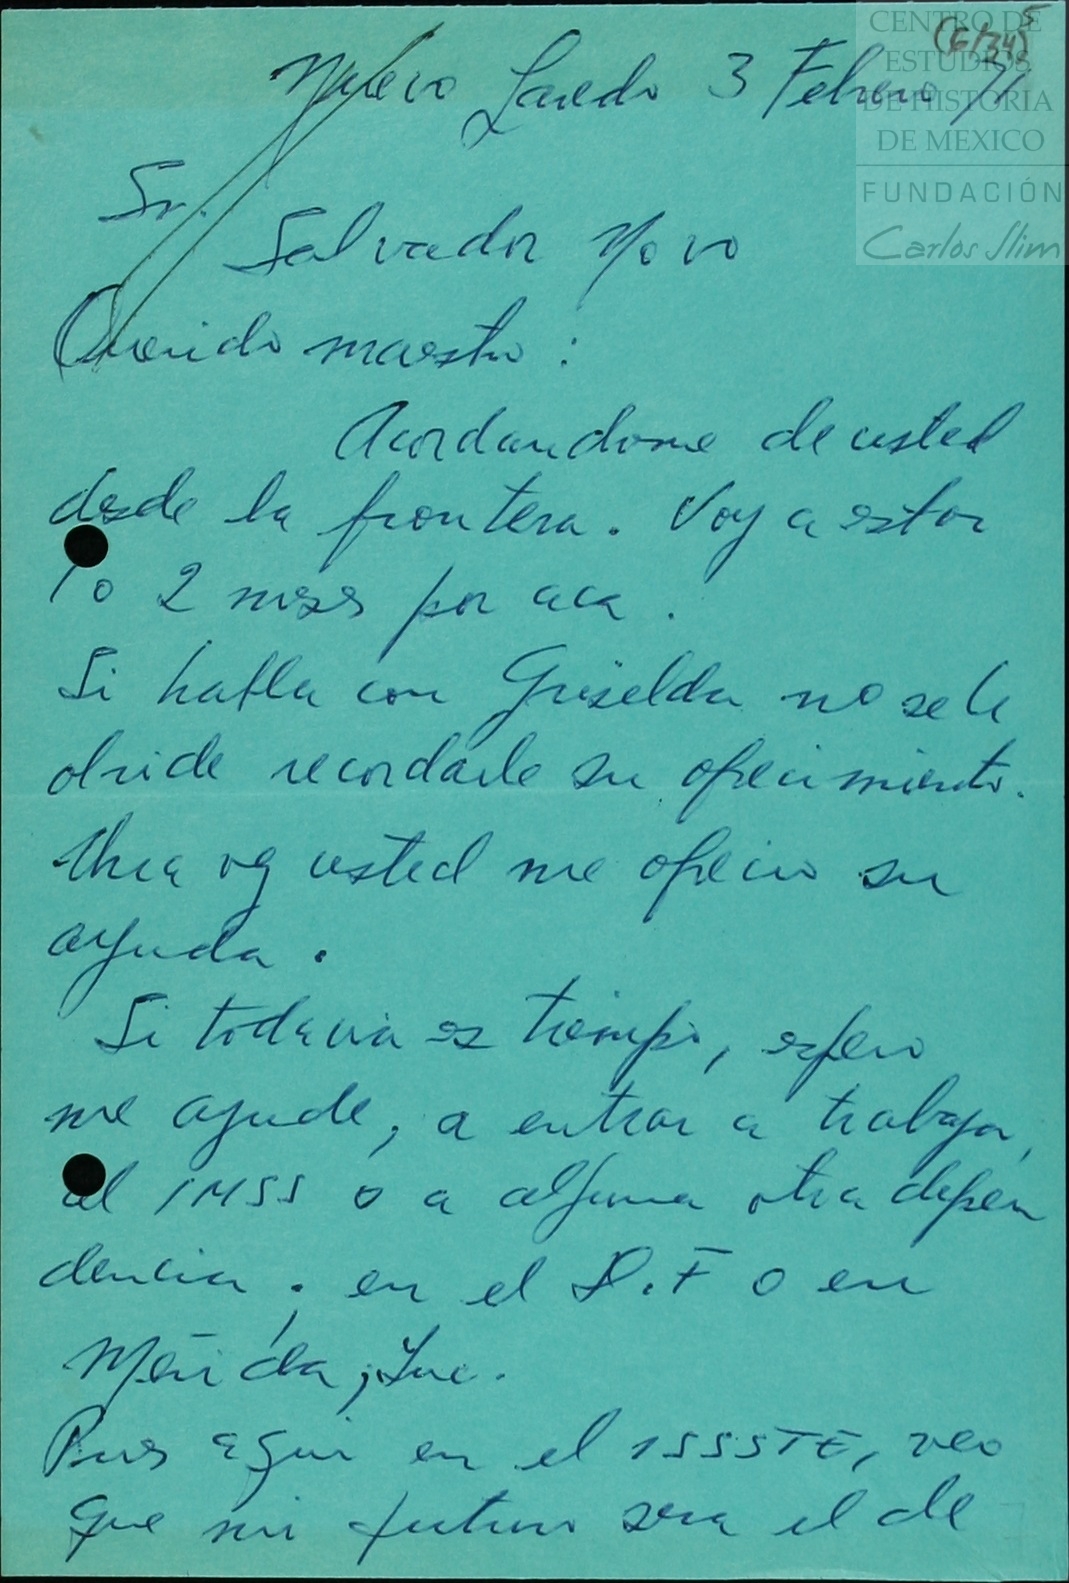 CENTRO DE
ESTUDIOS
DE HISTORIA
DE MEXICO
FUNDACIÓN
Carlos Slim
Nuevo Laredo 3 Febrero 71
Sr.
Salvador Novo
Querido maestro :
Acordandome de usted
desde la frontera. Voy a estar
1 o 2 meses por aca.
Si habla con Griselda no se le
olvide recordarle su ofrecimiento.
Una vez usted me ofrecio su
ayuda.
Si todavia es tiempo, espero
me ayude, a entrar a trabajar,
al IMSS o a alguna otra depen
dencia; en el D.F o en
Mérida, Yuc.
Pues aqui en el ISSSTE, veo
que mi futuro sera el de